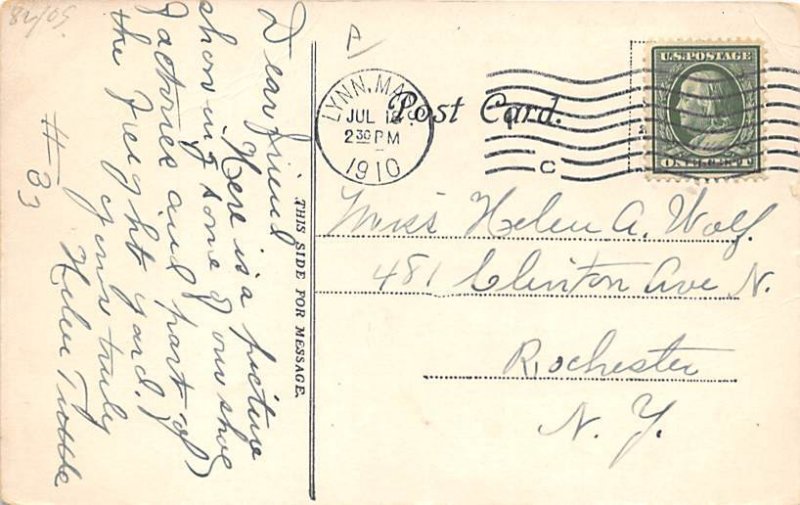 Dear friend
Here is a picture
showing some of our shoe
factories and part of
the freight yard.
yours truly
Helen
# 83
THIS SIDE FOR MESSAGE.
LYNN, MASS.
JUL
2 30 PM
1910
Post Card.
C
U.S. POSTAGE
ONE CENT
Miss Helen A. Wolf.
481 Clinton Ave N.
Rochester
N. Y.